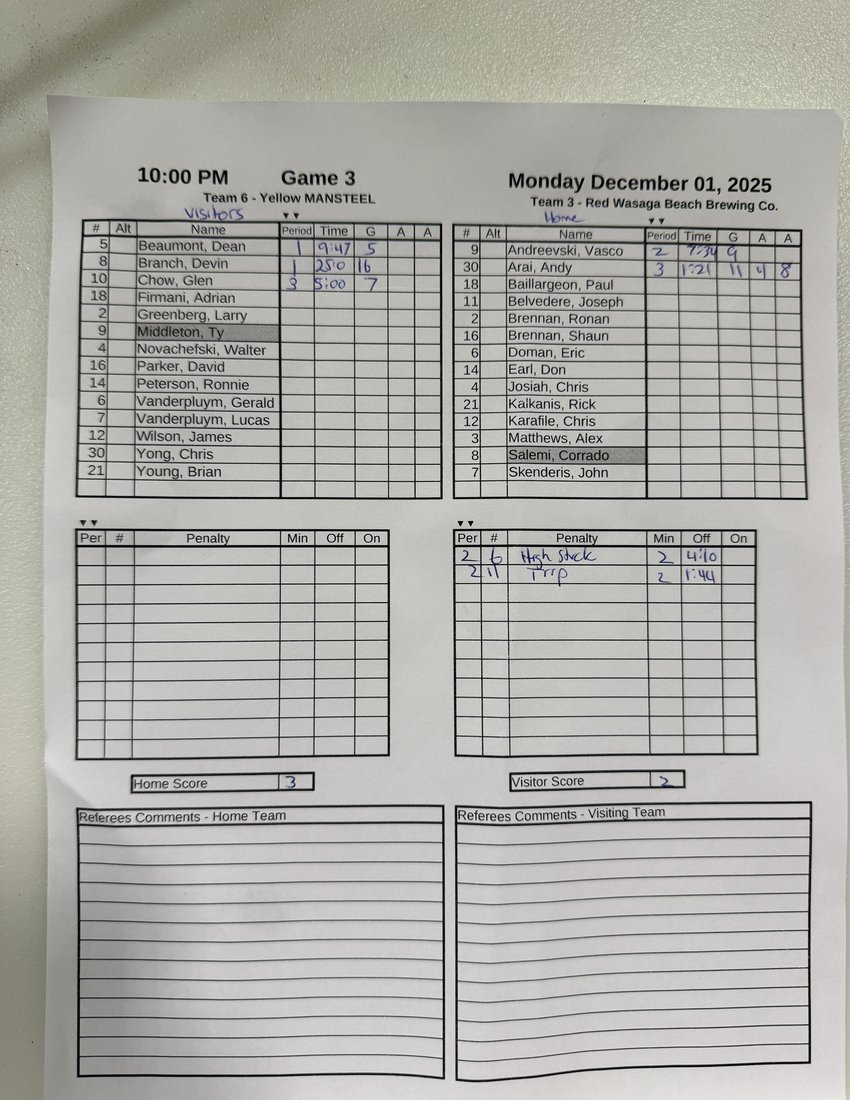 10:00 PM Game 3
Team 6 - Yellow MANSTEEL
Visitors
# Alt Name Period Time G A A
5 Beaumont, Dean 1 9:47 5
8 Branch, Devin 1 250 16
10 Chow, Glen 3 5:00 7
18 Firmani, Adrian
2 Greenberg, Larry
9 Middleton, Ty
4 Novachefski, Walter
16 Parker, David
14 Peterson, Ronnie
6 Vanderpluym, Gerald
7 Vanderpluym, Lucas
12 Wilson, James
30 Yong, Chris
21 Young, Brian
Monday December 01, 2025
Team 3 - Red Wasaga Beach Brewing Co.
Home
# Alt Name Period Time G A A
9 Andreevski, Vasco 2 7:34 9
30 Arai, Andy 3 1:21 11 4 8
18 Baillargeon, Paul
11 Belvedere, Joseph
2 Brennan, Ronan
16 Brennan, Shaun
6 Doman, Eric
14 Earl, Don
4 Josiah, Chris
21 Kalkanis, Rick
12 Karafile, Chris
3 Matthews, Alex
8 Salemi, Corrado
7 Skenderis, John
Per # Penalty Min Off On
Per # Penalty Min Off On
2 6 High Stick 2 4:10
2 11 Trip 2 1:44
Home Score 3
Visitor Score 2
Referees Comments - Home Team
Referees Comments - Visiting Team